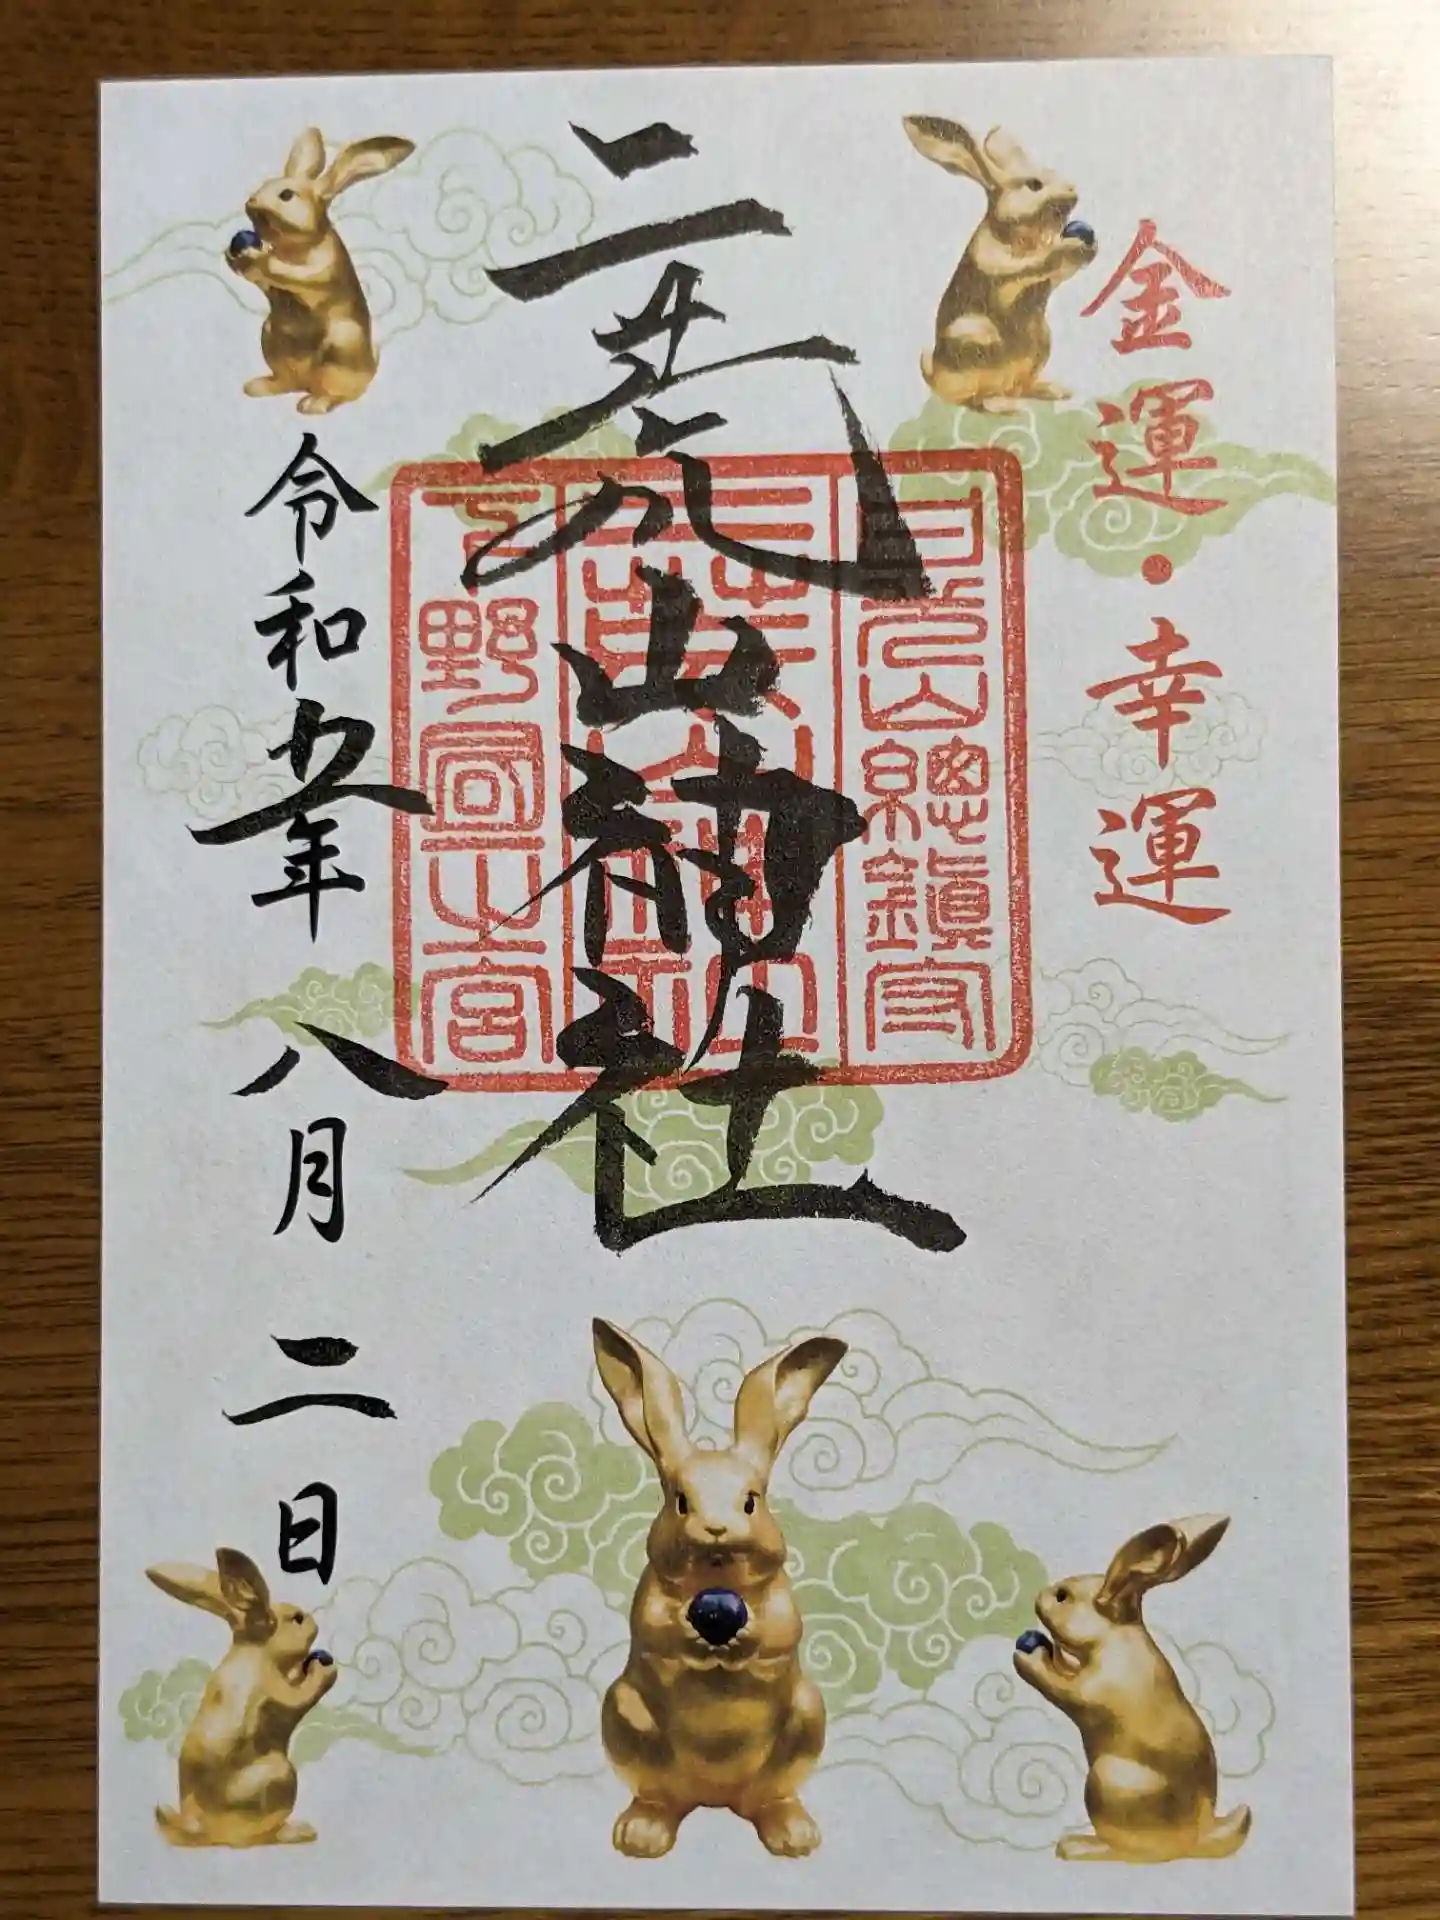 金運・幸運
二荒山神社
日光山總鎮守
二荒山神社
下野國一之宮
令和五年 八月 二日